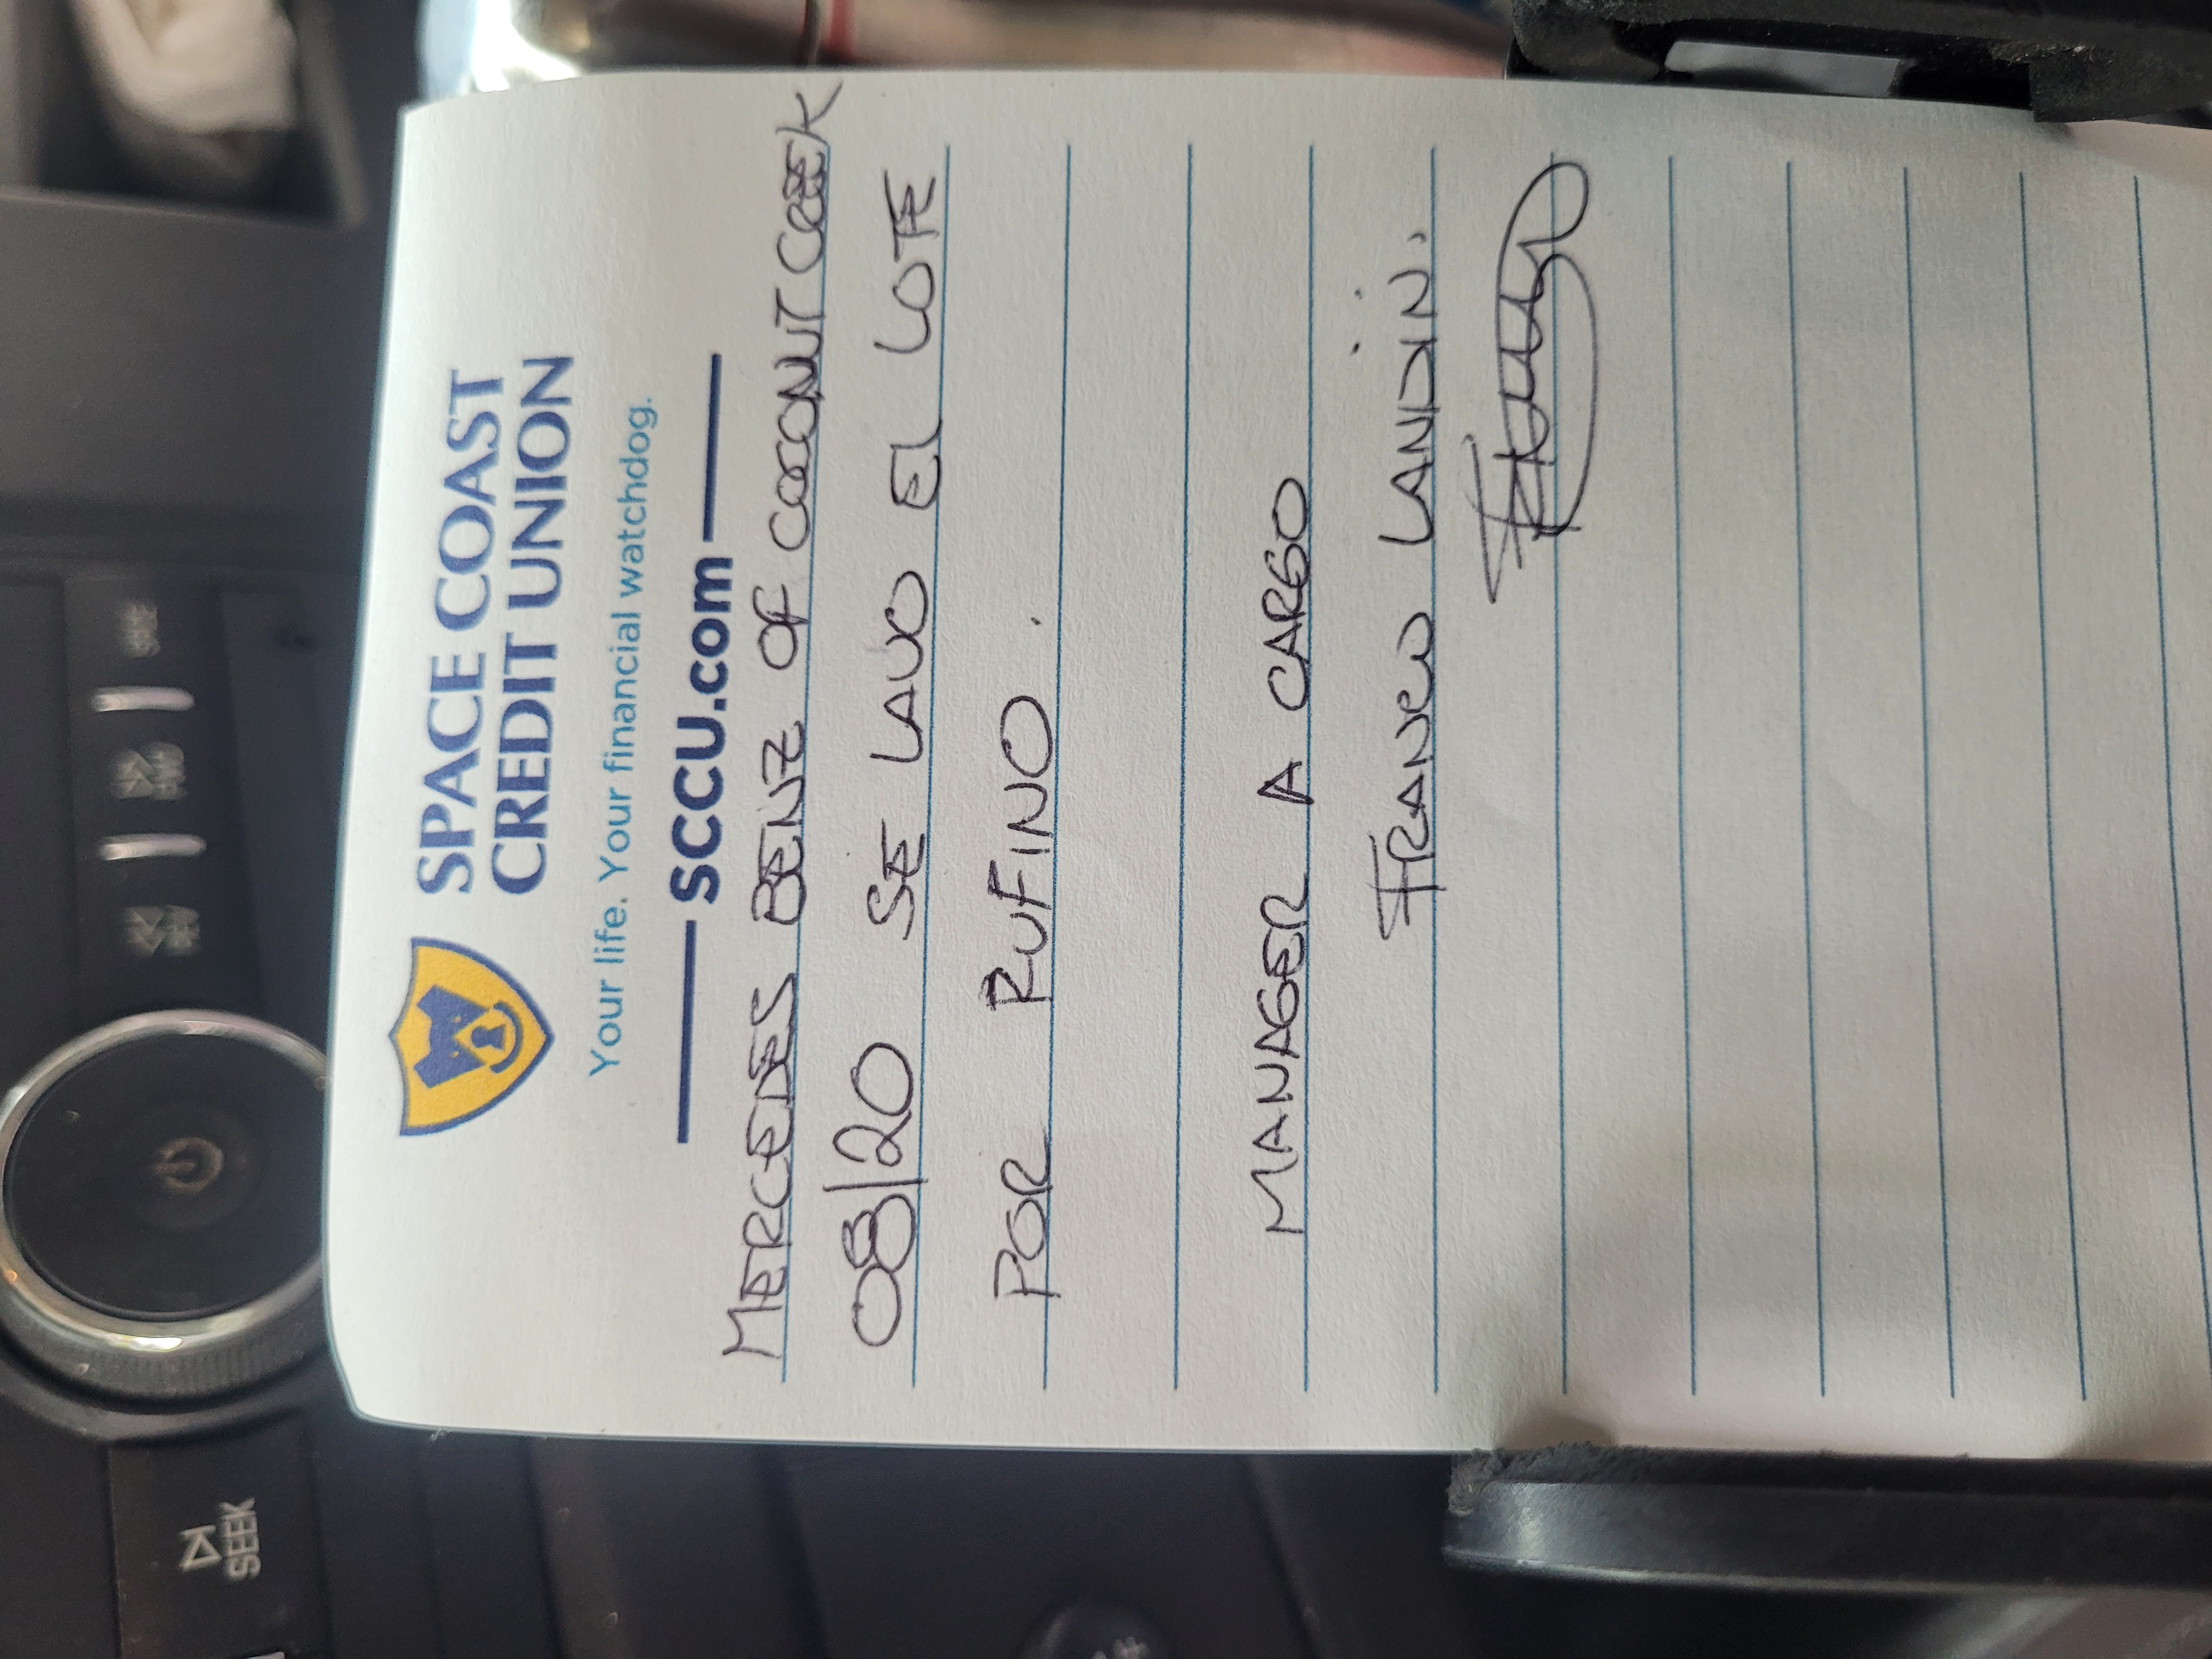 SPACE COAST
CREDIT UNION
Your life. Your financial watchdog.
SCCU.com
MERCEDES BENZ OF COCONUT CREEK
08/20 SE LAVO EL LOTE
POR RUFINO.
MANAGER A CARGO
FRANCO LANDIN.
SEEK